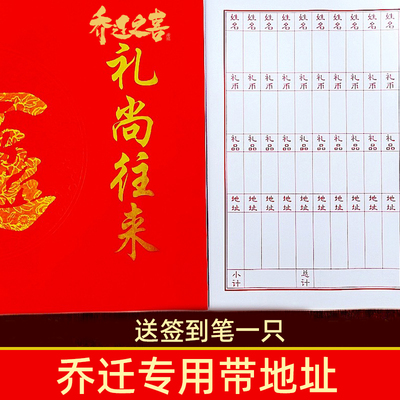 乔迁之喜
礼尚往来
姓名 姓名 姓名 姓名 姓名 姓名 姓名 姓名 姓名
礼币 礼币 礼币 礼币 礼币 礼币 礼币 礼币 礼币
礼品 礼品 礼品 礼品 礼品 礼品 礼品 礼品 礼品
地址 地址 地址 地址 地址 地址 地址 地址 地址
小计 总计
送签到笔一只
乔迁专用带地址